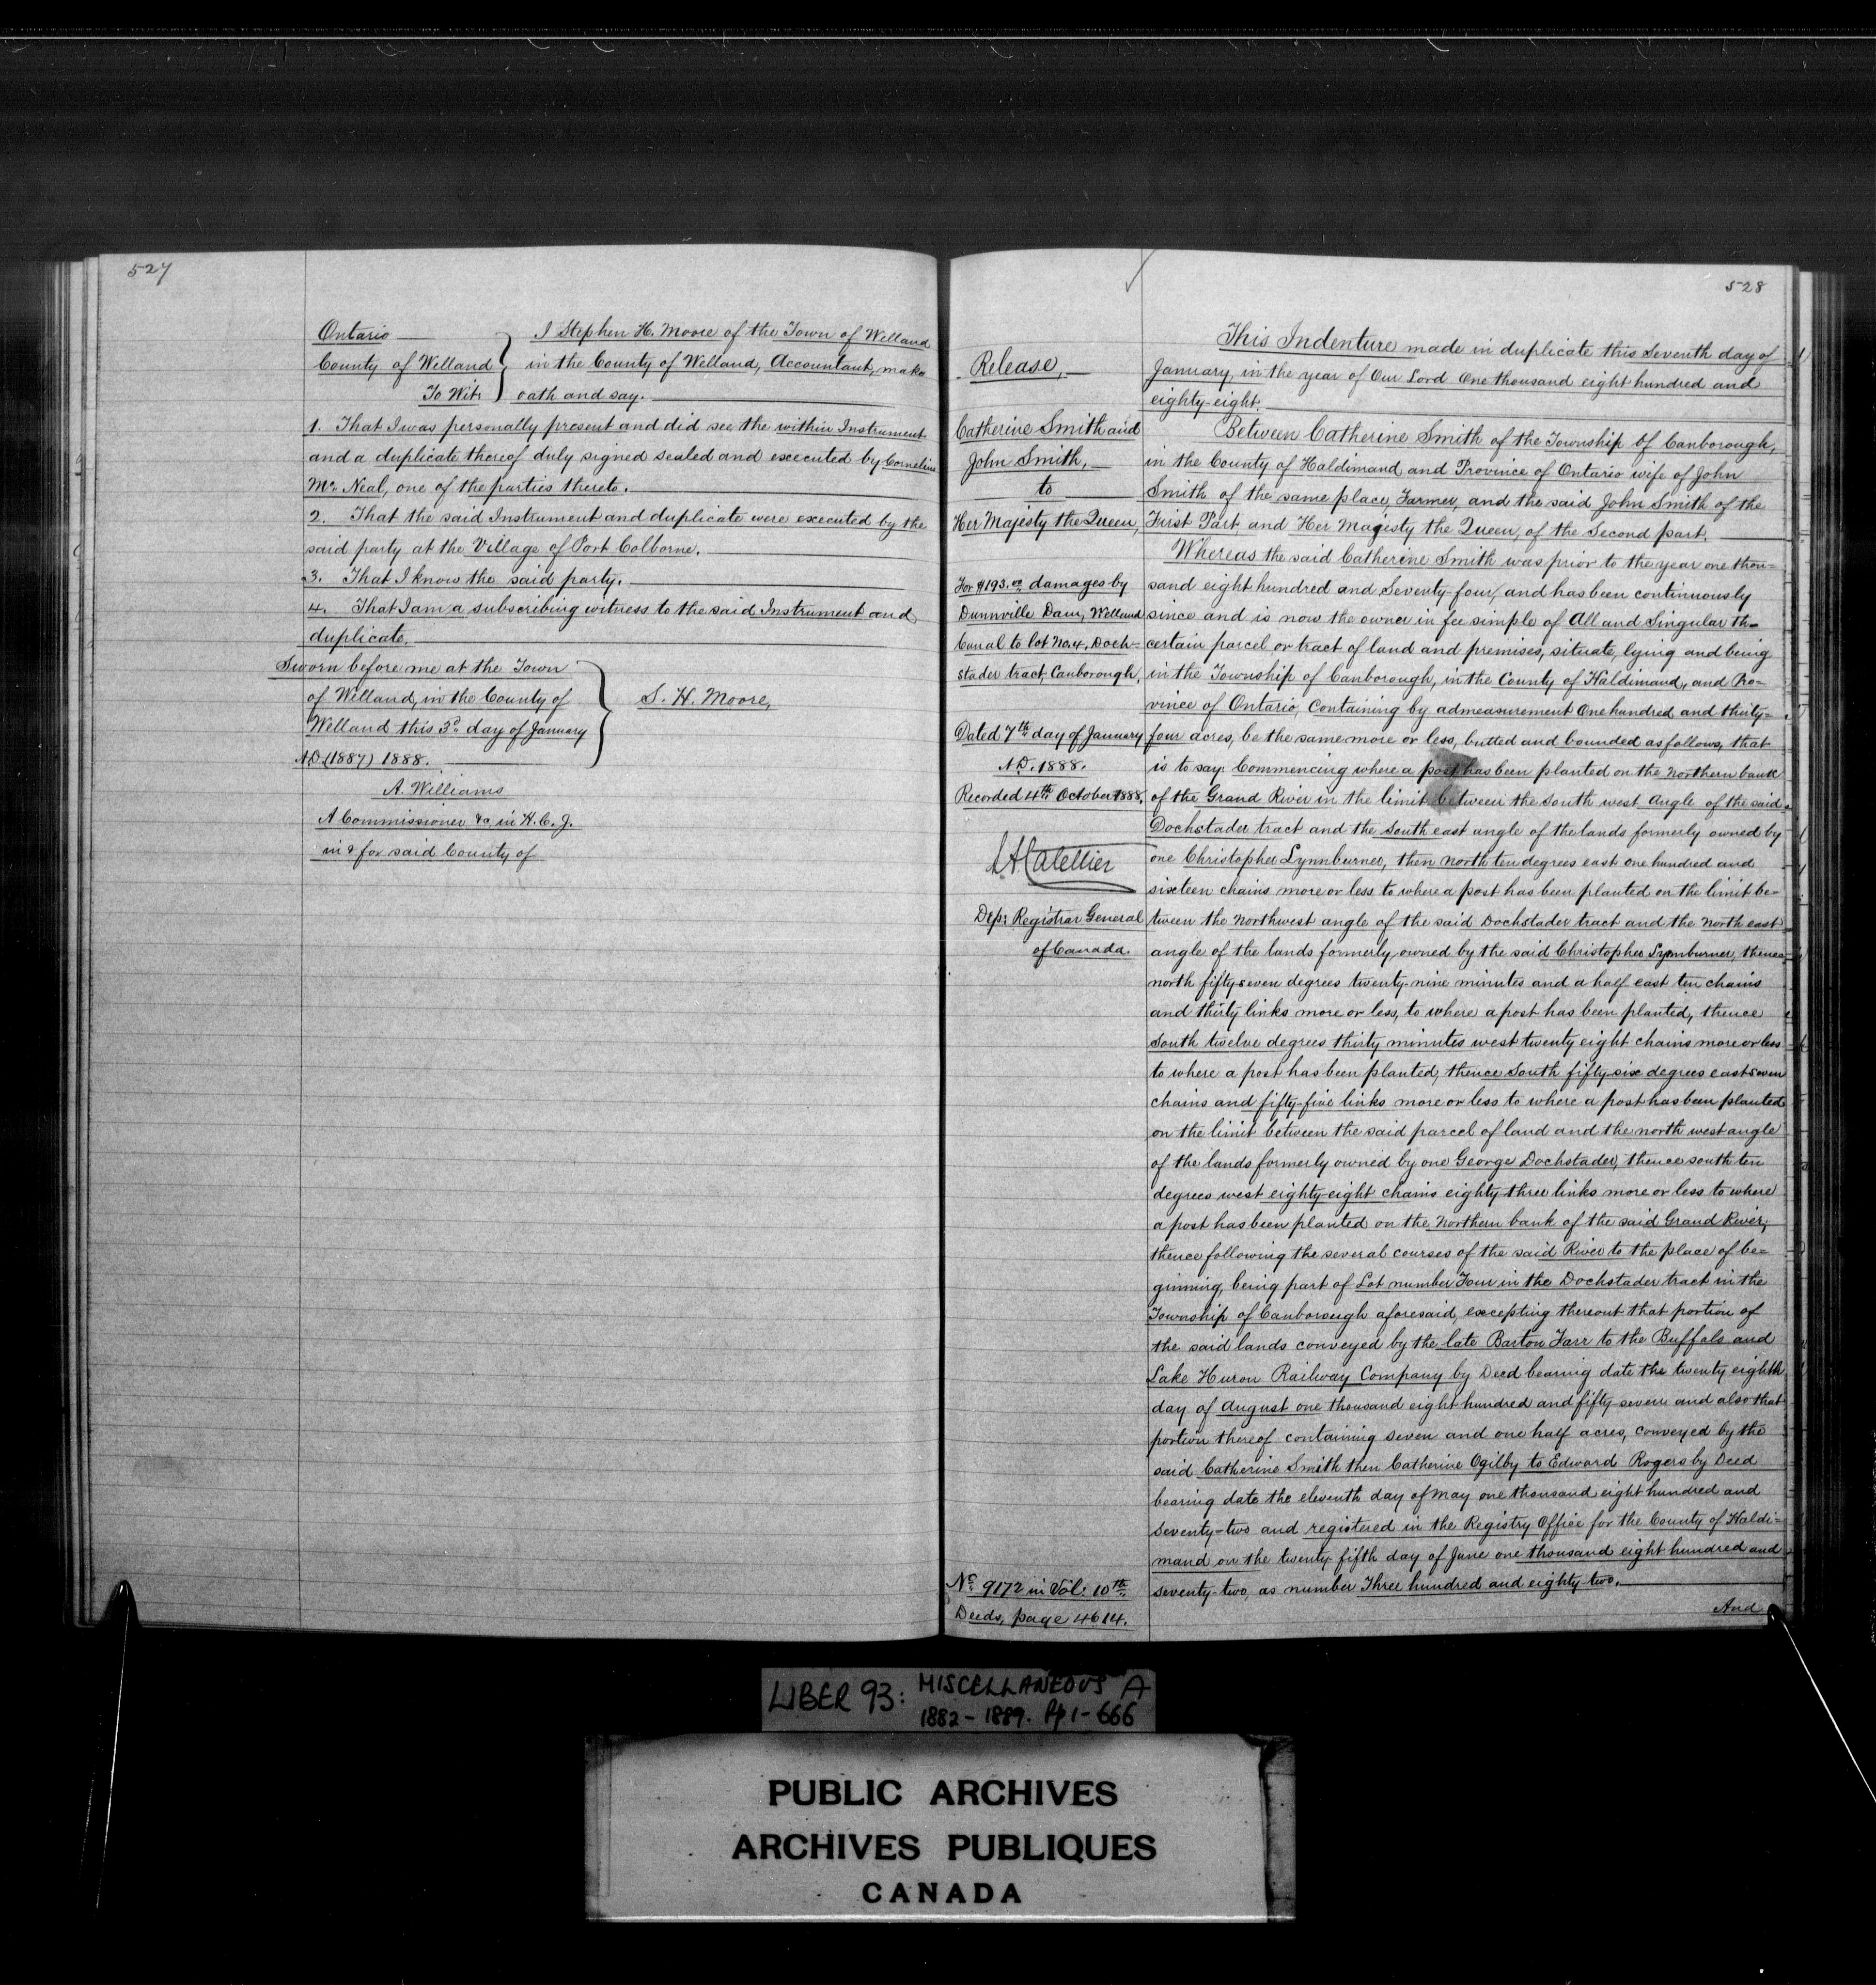 527
Ontario
County of Welland
To Wit:
I Stephen H. Moore of the Town of Welland
in the County of Welland, Accountant, make
oath and say.
1. That I was personally present and did see the within Instrument
and a duplicate thereof duly signed sealed and executed by Cornelius
Mc Neal, one of the parties thereto.
2. That the said Instrument and duplicate were executed by the
said party at the Village of Port Colborne.
3. That I know the said party.
4. That I am a subscribing witness to the said Instrument and
duplicate.
Sworn before me at the Town
of Welland, in the County of
Welland this 3d day of January
A.D. (1887) 1888.
S. H. Moore,
A. Williams
A Commissioner &c, in H. C. J.
in & for said County of
528
Release,
Catherine Smith and
John Smith,
to
Her Majesty the Queen,
For $193.00 damages by
Dunnville Dam, Welland
Canal to lot No. 4, Doch-
stader tract Canborough,
Dated 7th day of January
A.D. 1888.
Recorded 4th October 1888.
L. A. Catellier
Dep: Registrar General
of Canada.
No 9172 in Vol: 10th
Deeds, page 4614.
This Indenture made in duplicate this Seventh day of
January, in the year of Our Lord One thousand eight hundred and
eighty-eight.
Between Catherine Smith of the Township of Canborough,
in the County of Haldimand and Province of Ontario wife of John
Smith of the same place, Farmer, and the said John Smith of the
First Part, and Her Magesty the Queen, of the Second part.
Whereas the said Catherine Smith was prior to the year one thou-
sand eight hundred and Seventy-four, and has been continuously
since and is now the owner in fee simple of All and Singular th-
certain parcel or tract of land and premises, situate, lying and being
in the Township of Canborough, in the County of Haldimand, and Pro-
vince of Ontario, Containing by admeasurement One hundred and thirty-
four acres, be the same more or less, butted and bounded as follows, that
is to say: Commencing where a post has been planted on the Northern bank
of the Grand River in the limit between the South west Angle of the said
Dochstader tract and the South east angle of the lands formerly owned by
one Christopher Lynnburner, then North ten degrees east one hundred and
sixteen chains more or less to where a post has been planted on the limit be-
tween the Northwest angle of the said Dochstader tract and the North east
angle of the lands formerly owned by the said Christopher Lymburner, thence
north fifty seven degrees twenty-nine minutes and a half east ten chains
and thirty links more or less, to where a post has been planted, thence
South twelve degrees thirty minutes west twenty eight chains more or less
to where a post has been planted, thence South fifty-six degrees east seven
chains and fifty-five links more or less to where a post has been planted
on the limit between the said parcel of land and the north west angle
of the lands formerly owned by one George Dochstader, thence south ten
degrees west eighty-eight chains eighty three links more or less to where
a post has been planted on the Northern bank of the said Grand River,
thence following the several courses of the said River to the place of be-
ginning, being part of Lot number Four in the Dochstader tract in the
Township of Canborough aforesaid, excepting thereout that portion of
the said lands conveyed by the late Barton Farr to the Buffalo and
Lake Huron Railway Company by Deed bearing date the twenty eighth
day of August one thousand eight hundred and fifty-seven and also that
portion thereof containing seven and one half acres, conveyed by the
said Catherine Smith then Catherine Ogilby to Edward Rogers by Deed
bearing date the eleventh day of May one thousand eight hundred and
seventy-two and registered in the Registry Office for the County of Haldi-
mand on the twenty-fifth day of June one thousand eight hundred and
seventy-two, as number Three hundred and eighty two.
And
LIBER 93: MISCELLANEOUS A
1882-1889. Pp 1-666
PUBLIC ARCHIVES
ARCHIVES PUBLIQUES
CANADA